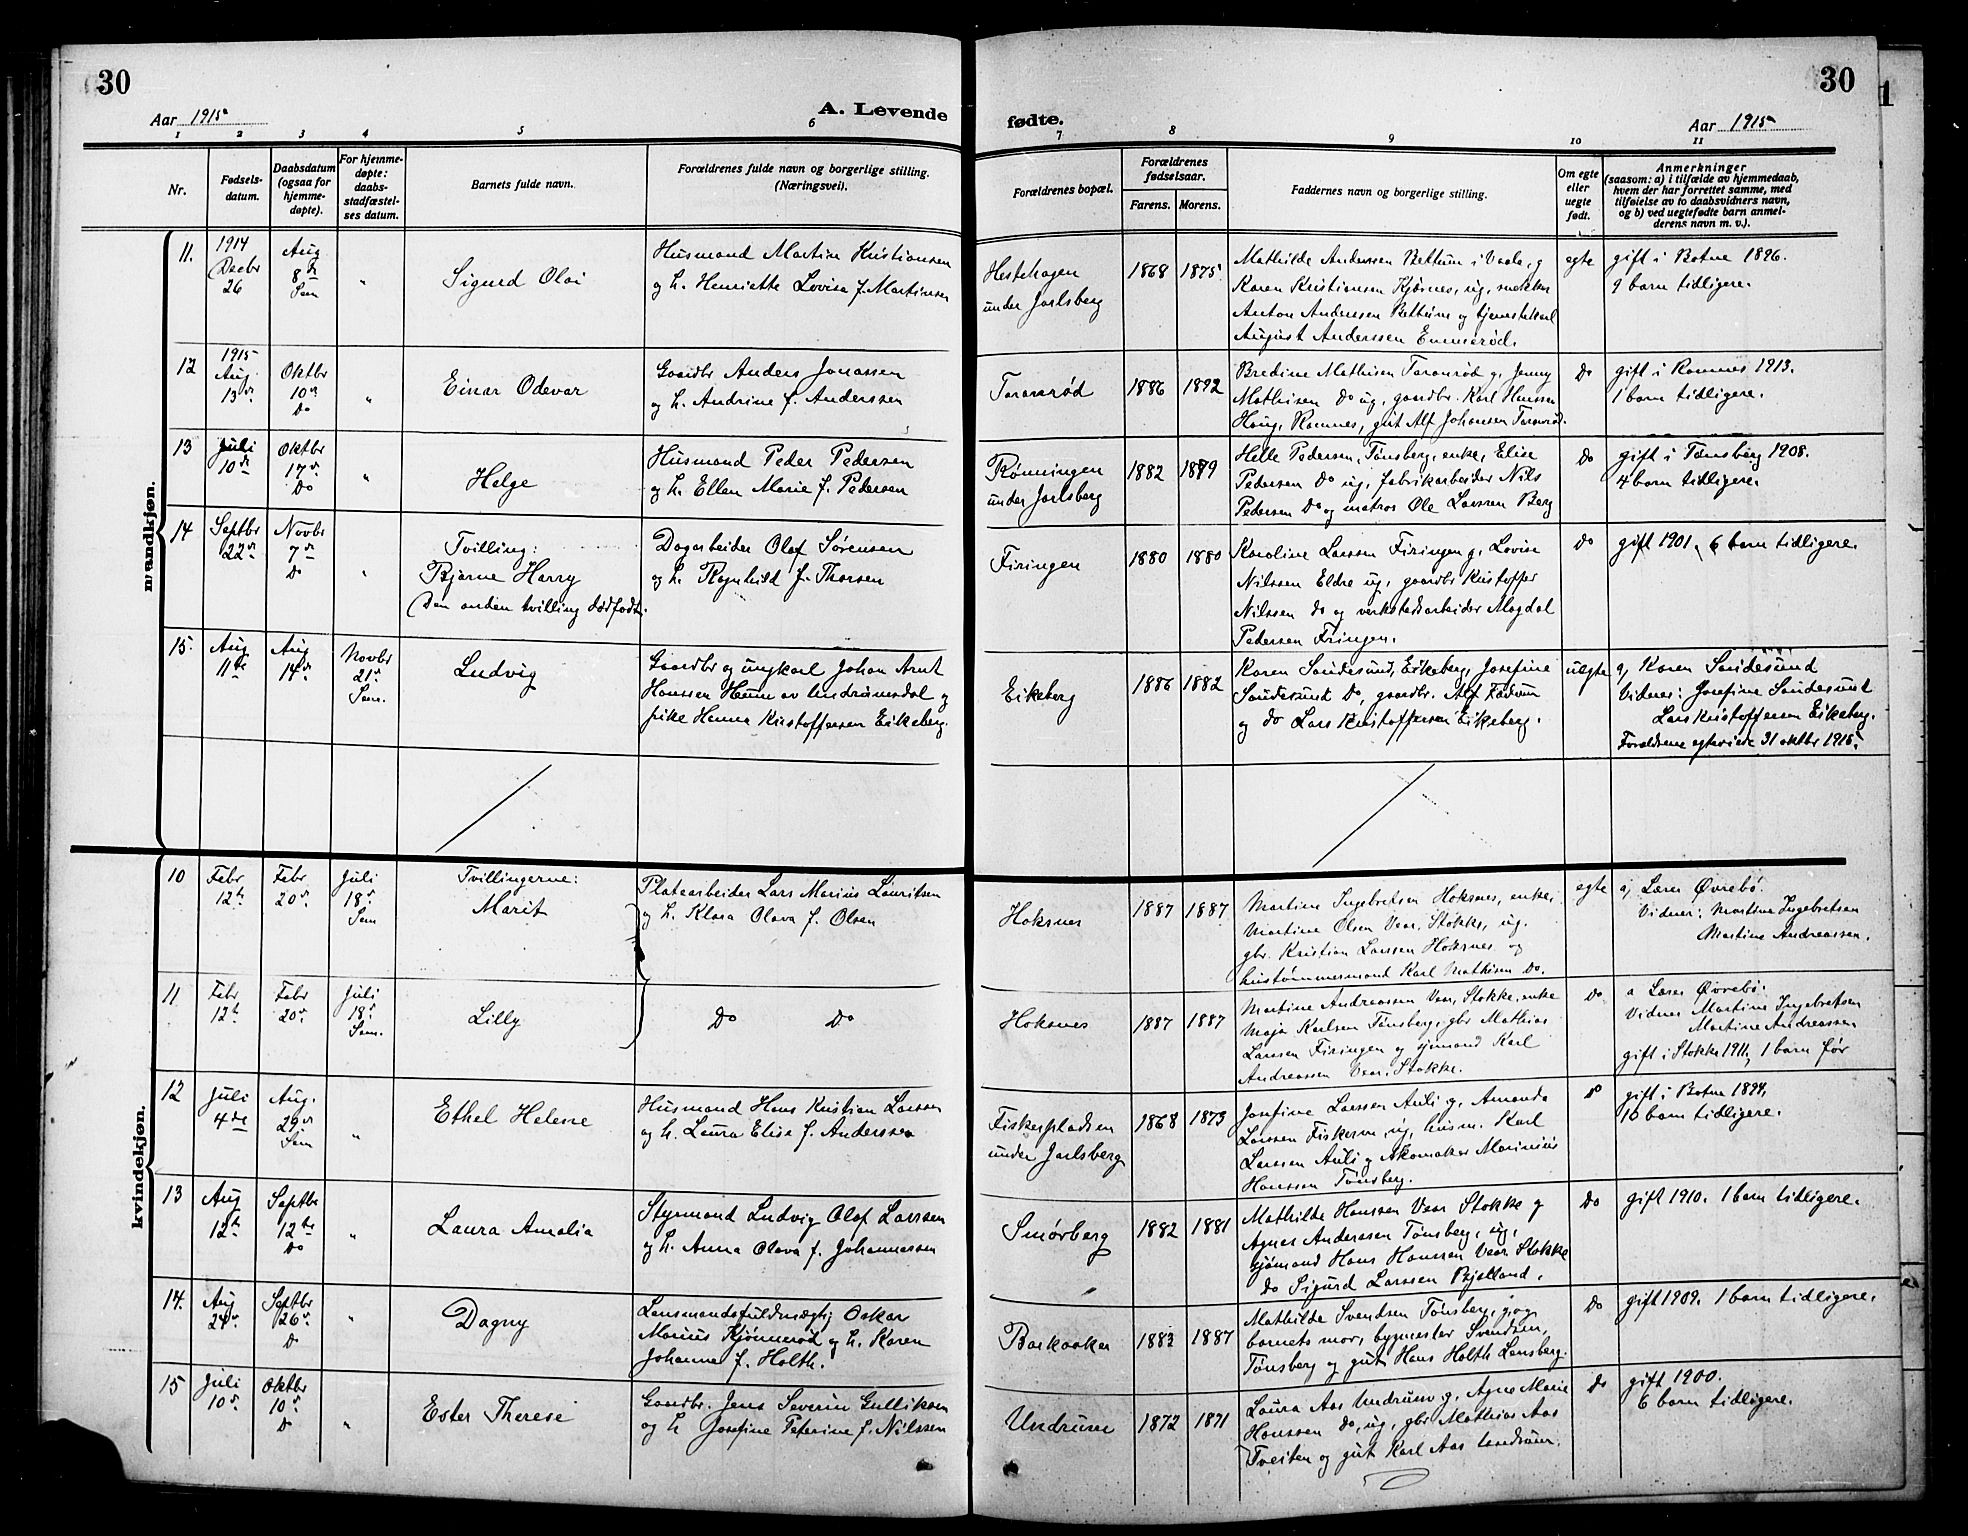 30
Aar 1915
A. Levende
1 2 3 4 5 6
Nr.
Fødsels-
datum.
Daabsdatum
(ogsaa for
hjemme-
døpte).
For hjemme-
døpte:
daabs-
stadfæstel-
ses datum.
Barnets fulde navn.
Forældrenes fulde navn og borgerlige stilling.
(Næringsvei).
mandkjøn.
11.
1914
Decbr
26
Aug
8de
Sem
"
Sigurd Olai
Husmand Martin Kristiansen
og h. Henriette Lovise f. Martinsen
12
1915
Aug.
13de
Oktbr
10de
Do
"
Einar Odevar
Gaardbr Anders Jonassen
og h. Andrine f. Anderssen
13
Juli
10de
Oktbr
17de
Do
"
Helge
Husmand Peder Pedersen
og h. Ellen Marie f. Pedersen
14
Septbr
22de
Novbr
7de
Do
"
Tvilling:
Bjarne Harry
Den anden tvilling dødfødt.
Dagarbeider Olaf Sørensen
og h. Ragnhild f. Thorsen
15.
Aug
11te
Aug
14de
Novbr
21de
Sem.
Ludvig
Gaardbr og ungkarl Johan Arnt
Hanssen Haum av Undrumsdal og
pike Hanna Kristoffersen Eikeberg.
kvindekjøn.
10
Febr
12te
Febr
20de
Juli
18de
Sem
Tvillingerne:
Marit
Platearbeider Lars Marius Lauritsen
og h. Klara Olava f. Olsen
11
Febr
12te
Febr
20de
Juli
18de
Sem.
Lilly
Do Do
12
Juli
4de
Aug.
29de
Sem
"
Ethel Helene
Husmand Hans Kristian Larssen
og h. Laura Elise f. Anderssen
13
Aug
12te
Septbr
12te
Do
"
Laura Amalia
Styrmand Ludvig Olaf Larssen
og h. Anna Olava f. Johannessen
14.
Aug
24de
Septbr
26de
Do
"
Dagny
Lensmandsfuldmægtig Oskar
Marius Kjønnerød og h. Karen
Johanne f. Holth.
15
Juli
10de
Oktbr
10de
Do
"
Ester Therese
Gaardbr. Jens Severin Gulliksen
og h Josefine Peterine f. Nilssen
30
fødte.
Aar 1915
7 8 9 10 11
Forældrenes bopæl.
Forældrenes
fødselsaar.
Farens. Morens.
Faddernes navn og borgerlige stilling.
Om egte
eller
uegte
født.
Anmerkninger
(saasom: a) i tilfælde av hjemmedaab,
hvem der har forrettet samme, med
tilføielse av to daabsvidners navn,
og b) ved uegtefødte barn anmel-
derens navn m. v.).
Hestehagen
under Jarlsberg
1868 1875
Mathilde Anderssen Bettum i Vaale, g
Karen Kristiansen Kjærnes, ug, snekker
Anton Anderssen Bettum og tjenestekarl
August Anderssen Emmerød.
egte
gift i Botne 1896.
9 barn tidligere.
Taranrød
1886 1892
Bredine Mathisen Taranrød g, Jenny
Mathisen Do ug, gaardbr. Karl Hanssen
Haug, Ramnes, gut Alf Johansen Taranrød.
Do
gift i Ramnes 1913.
1 barn tidligere.
Rønningen
under Jarlsberg
1882 1889
Helle Pedersen, Tønsberg, enke, Elise
Pedersen Do ug, fabrikarbeider Nils
Pedersen Do og matros Ole Larssen Berg
Do
gift i Tønsberg 1908.
4 barn tidligere.
Firingen
1880 1880
Karoline Larssen Firingen g, Lovise
Nilssen Eldre ug, gaardbr Kristoffer
Nilssen Do og verkstedsarbeider Magdal
Pedersen Firingen.
Do
gift 1901, 6 barn tidligere.
Eikeberg
1886 1882
Karen Sandesund, Eikeberg, Josefine
Sandesund Do, gaardbr. Alf Fadum
og Do Lars Kristoffersen Eikeberg.
uegte
a, Karen Sandesund
Vidner: Josefine Sandesund
Lars Kristoffersen Eikeberg.
Forældrene egteviede 31 oktbr 1915.
Hoksnes
1887 1887
Martine Ingebretsen Hoksnes, enke,
Martine Olsen Vear, Stokke, ug.
gbr. Kristian Larssen Hoksnes og
hustømmermand Karl Mathisen Do.
egte
a, Lærer Øvrebø.
Vidner: Martine Ingebretsen
Martine Andreassen.
Hoksnes
1887 1887
Martine Andreassen Vear, Stokke, enke
Maja Karlsen Tønsberg, gbr Mathias
Larssen Firingen og sjømand Karl
Andreassen Vear, Stokke.
Do
a Lærer Øvrebø.
Vidner Martine Ingebretsen
Martine Andreassen
gift i Stokke 1911, 1 barn før
Fiskerpladsen
under Jarlsberg
1868 1873
Josefine Larssen Auli g, Amanda
Larssen Fiskerpl, ug, husm. Karl
Larssen Auli og skomaker Marinius
Hanssen Tønsberg.
Do
gift i Botne 1894.
10 barn tidligere.
Smørberg
1882 1881
Mathilde Hanssen Vear Stokke g
Agnes Anderssen Tønsberg, ug,
sjømand Hans Hanssen Vear Stokke
Do Sigurd Larssen Bjelland.
Do
gift 1910. 1 barn tidligere.
Barkaaker
1883 1887
Mathilde Svendsen Tønsberg, g, og
barnets mor, bygmester Svendsen,
Tønsberg og gut Hans Holth Lensberg.
Do
gift 1909. 1 barn tidligere.
Undrum
1872 1871
Laura Aas Undrum g, Agne Marie
Hanssen Do, ug, gbr Mathias Aas
Tveiten og gut Karl Aas Undrum.
Do
gift 1900.
6 barn tidligere.